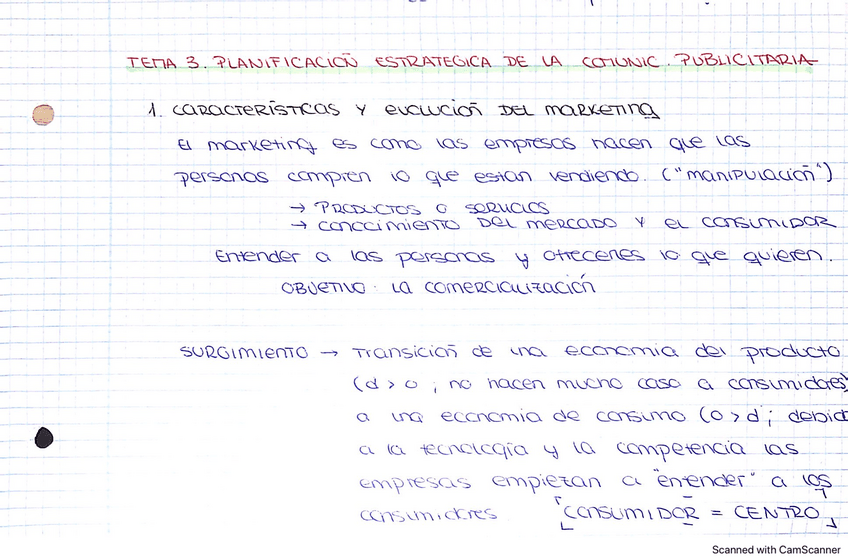 TEMA 3. PLANIFICACIÓN ESTRATEGICA DE LA COMUNIC. PUBLICITARIA
1. CARACTERÍSTICAS Y EVOLUCIÓN DEL MARKETING
El marketing es como las empresas hacen que las
personas compren lo que estan vendiendo. ("MANIPULACIÓN")
→ PRODUCTOS O SERVICIOS
→ CONOCIMIENTO DEL MERCADO Y EL CONSUMIDOR
Entender a las personas y ofrecerles lo que quieren.
OBJETIVO: LA COMERCIALIZACIÓN
SURGIMIENTO → Transición de una economia del producto
(d > o ; no hacen mucho caso a consumidores)
a una economia de consumo (o > d ; debid
a la tecnología y la competencia las
empresas empiezan a "entender" a los
consumidores ⌈CONSUMIDOR = CENTRO⌋
Scanned with CamScanner